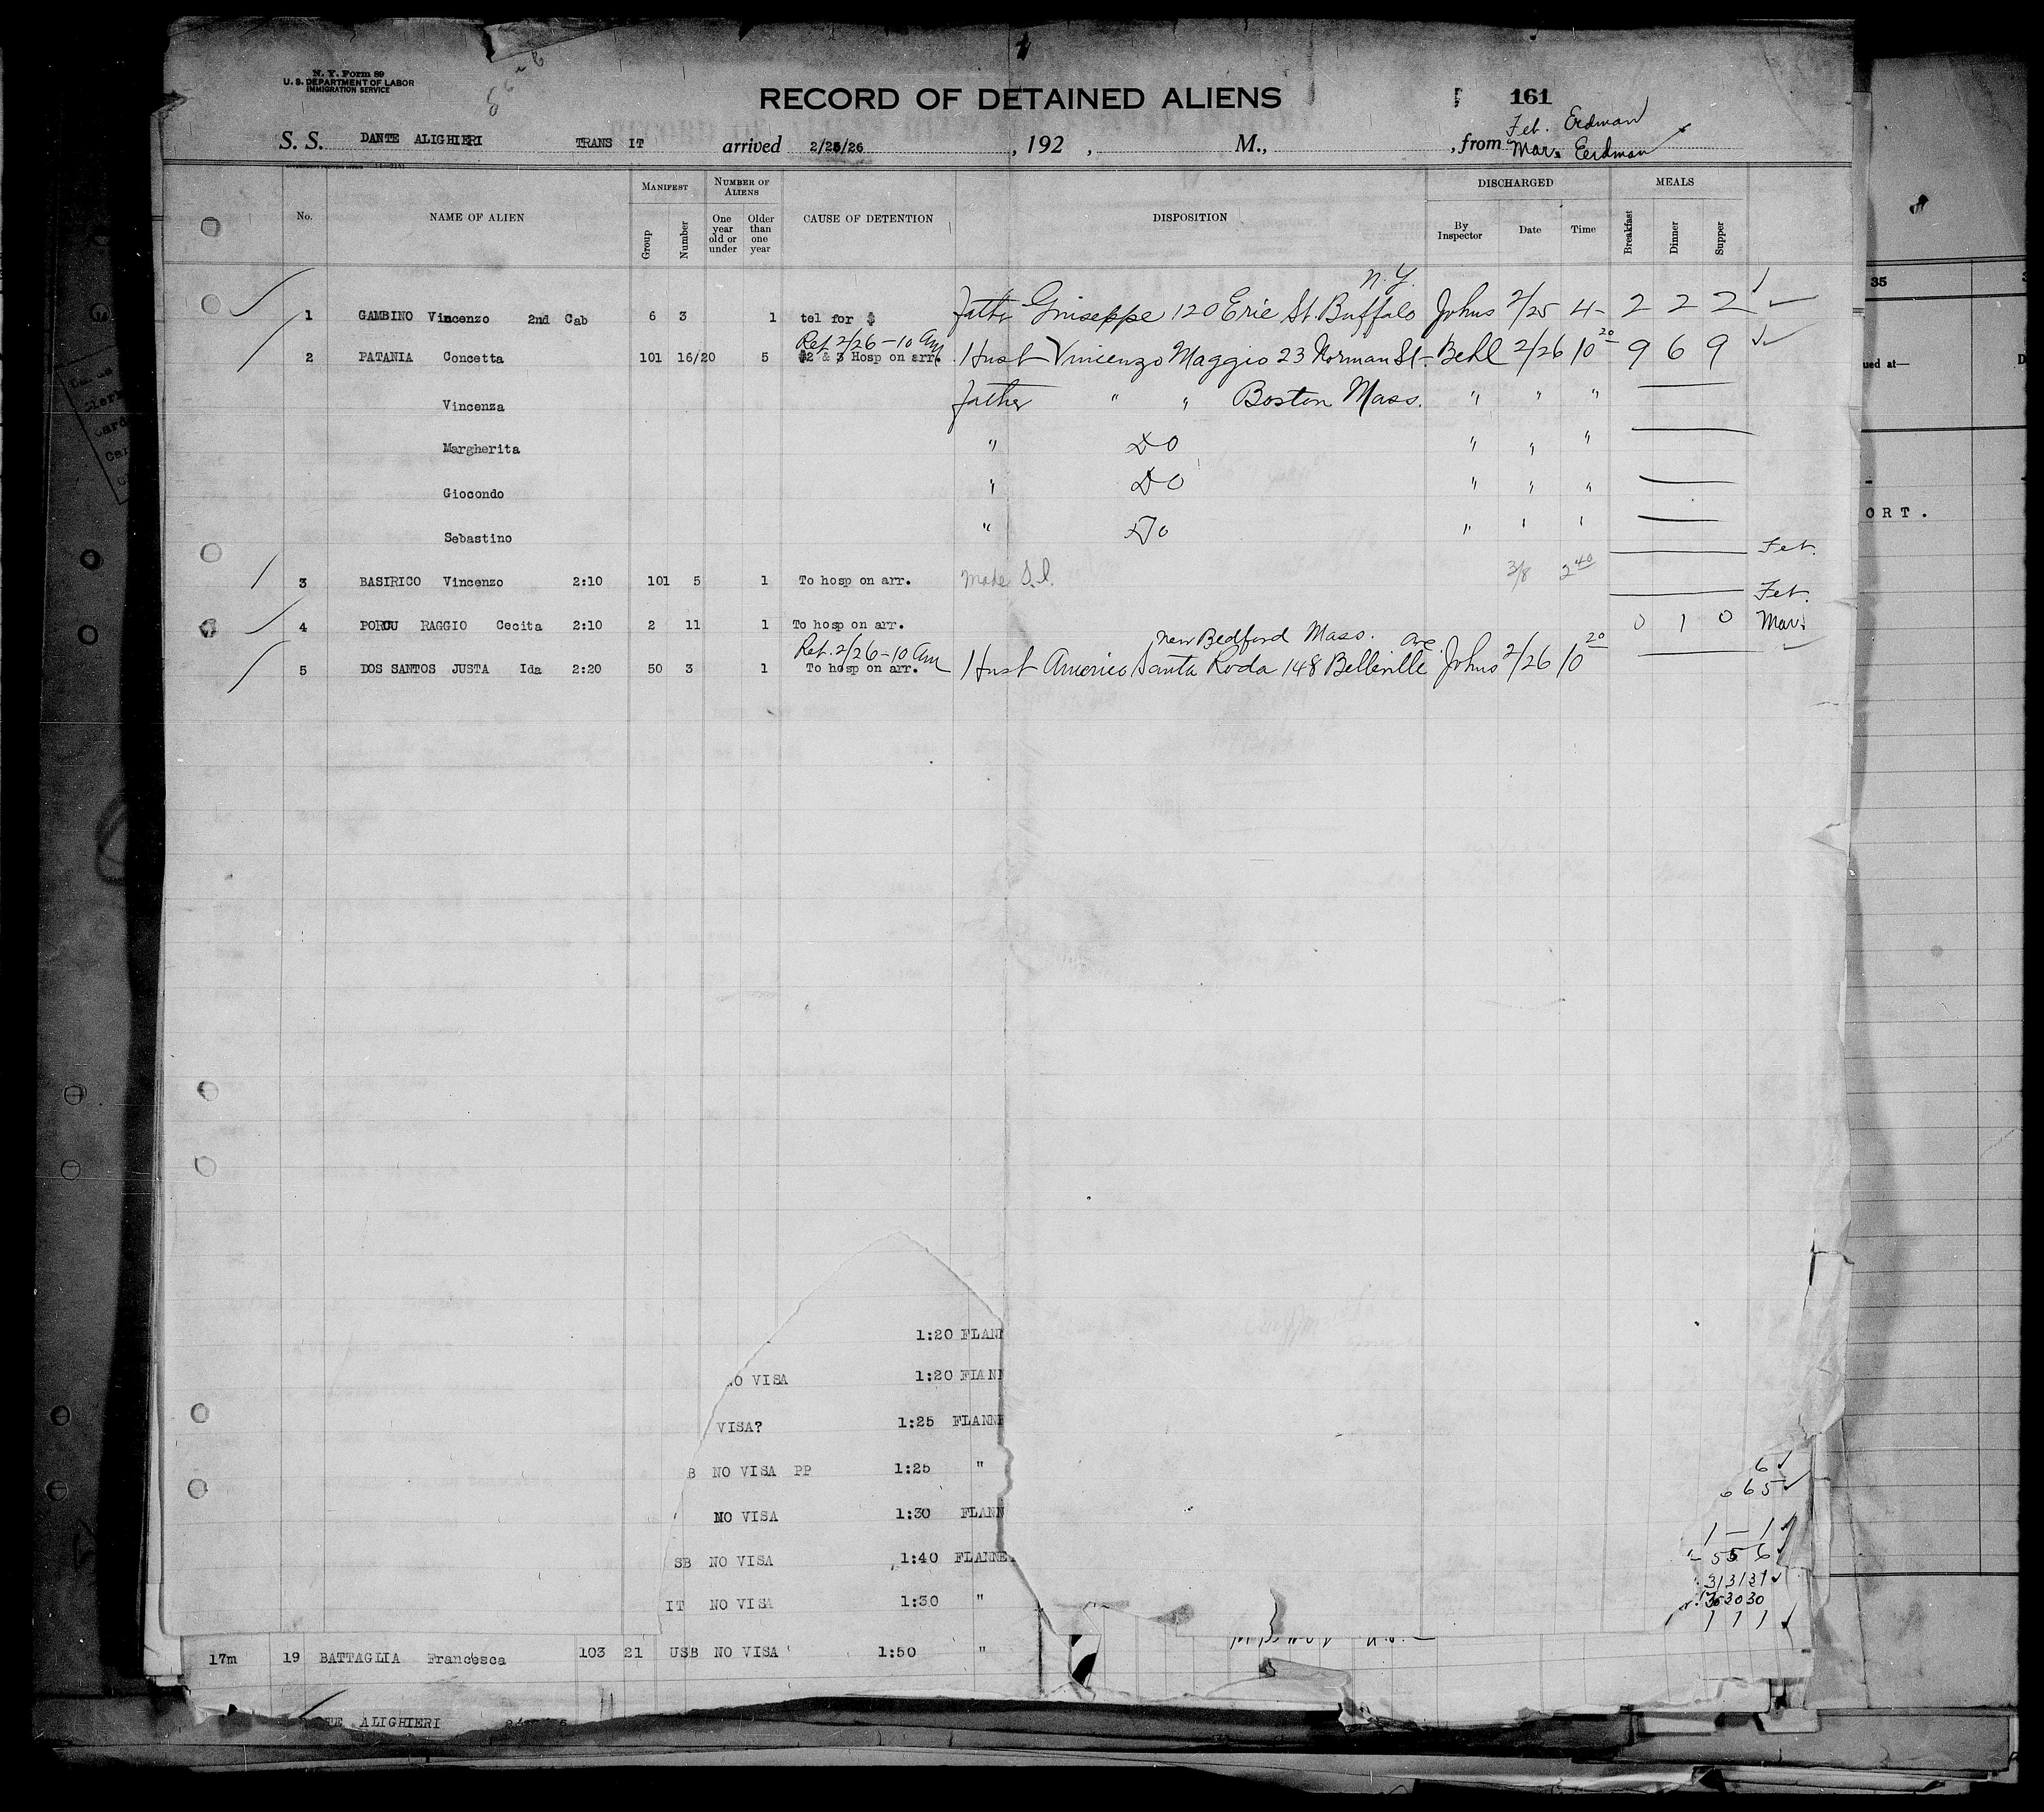 N. Y. Form 89
U. S. DEPARTMENT OF LABOR
IMMIGRATION SERVICE
RECORD OF DETAINED ALIENS 161
S. S. DANTE ALIGHIERI TRANS IT arrived 2/25/26 , 192 , M., , from Feb. Erdman
Mar. Eerdman
No. NAME OF ALIEN MANIFEST Group Number NUMBER OF ALIENS One year old or under Older than one year CAUSE OF DETENTION DISPOSITION DISCHARGED By Inspector Date Time MEALS Breakfast Dinner Supper
N.Y.
1 GAMBINO Vincenzo 2nd Cab 6 3 1 tel for $ Father Giuseppe 120 Erie St. Buffalo Johns 2/25 4- 2 2 2
Ret 2/26-10 AM
2 PATANIA Concetta 101 16/20 5 #2 & 3 Hosp on arr. Husb Vincenzo Maggio 23 Norman St- Behl 2/26 10 20 9 6 9
Vincenza Father " " Boston Mass. " " "
Margherita " DO " " "
Giocondo " DO " " "
Sebastino " Do " " "
Feb.
3 BASIRICO Vincenzo 2:10 101 5 1 To hosp on arr. Made S.I. 3/8 2 40
Feb.
4 PORCU RAGGIO Cecita 2:10 2 11 1 To hosp on arr. 0 1 0 Mar.
Ret. 2/26-10 AM New Bedford Mass. Ave
5 DOS SANTOS JUSTA Ida 2:20 50 3 1 To hosp on arr. Husb Americo Santa Roda 148 Belleville Johns 2/26 10 20
1:20 FLANN
NO VISA 1:20 FLANN
VISA? 1:25 FLANNE
B NO VISA PP 1:25 "
NO VISA 1:30 FLANN
SB NO VISA 1:40 FLANNE
IT NO VISA 1:30 "
17m 19 BATTAGLIA Francesca 103 21 USB NO VISA 1:50 "
ALIGHIERI
6
6 6 5
1 - 1
5 5 6
31 31 31
30 30
1 1 1
35
ued at—
ORT.